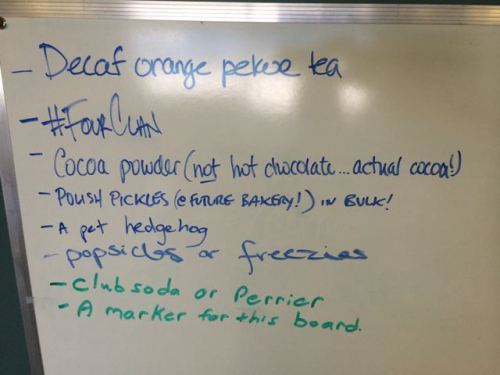 - Decaf orange pekoe tea
- #FOURCLAN
- Cocoa powder (not hot chocolate... actual cocoa!)
- POLISH PICKLES (@ FUTURE BAKERY!) IN BULK!
- A pet hedgehog
- popsicles or freezies
- Club soda or Perrier
- A marker for this board.